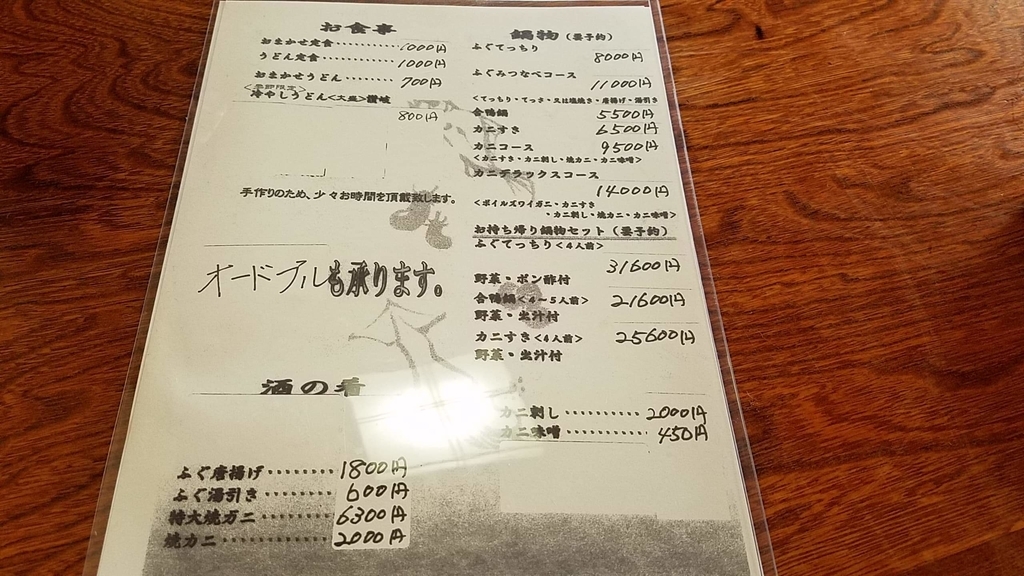 お食事
おまかせ定食・・・・・・・・・1000円
うどん定食・・・・・・・・・・1000円
おまかせうどん・・・・・・700円
<季節限定>
冷やしうどん<大盛>讃岐
800円
手作りのため、少々お時間を頂戴致します。
オードブルも承ります。
酒の肴
ふぐ唐揚げ・・・・・・・・1800円
ふぐ湯引き・・・・・・・・600円
特大焼カニ・・・・・・・・6300円
焼カニ・・・・・・・・・・・・2000円
鍋物(要予約)
ふぐてっちり
8000円
ふぐみつなべコース
11000円
<てっちり・てっさ・又は塩焼き・唐揚げ・湯引き
合鴨鍋 5500円
カニすき 6500円
カニコース 9500円
<カニすき・カニ刺し・焼カニ・カニ味噌>
カニデラックスコース
14000円
<ボイルズワイガニ・カニすき
・カニ刺し・焼カニ・カニ味噌>
お持ち帰り鍋物セット(要予約)
ふぐてっちり<4人前>
31600円
野菜・ポン酢付
合鴨鍋<4〜5人前> 21600円
野菜・出汁付
カニすき<4人前> 25600円
野菜・出汁付
カニ刺し・・・・・・・・・・2000円
カニ味噌・・・・・・・・・・・450円